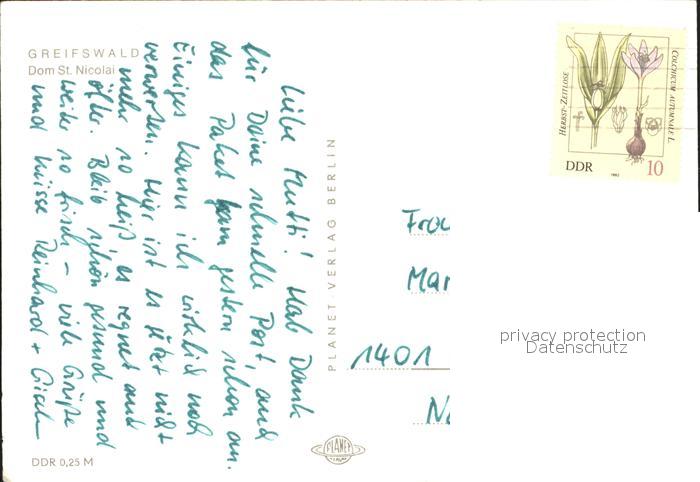 GREIFSWALD
Dom St. Nicolai
Liebe Mutti! Hab Dank
für Deine schnelle Post, auch
das Paket kam gestern schon an.
Einiges kann ich wirklich noch
verwerten. Hier ist es jetzt nicht
mehr so heiß, es regnet auch
öfter. Bleib schön gesund und
weiter so frisch – viele Grüße
und Küsse Reinhard +
DDR 0,25 M
PLANET VERLAG BERLIN
PLANET
HERBST-ZEITLOSE
COLCHICUM AUTUMNALE L.
DDR
1982
10
Frau
Mar
1401
N
privacy protection
Datenschutz